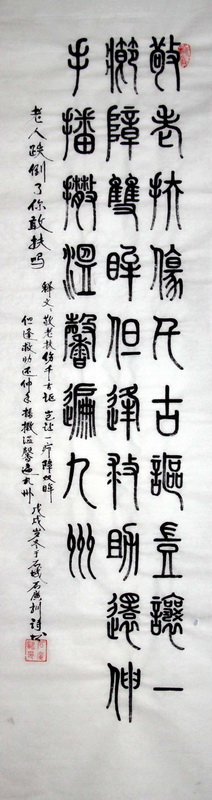 敬老扶傷千古謳豈讓一
障雙眸但逢救助還伸
手播撒溫馨遍九州
老人跌倒了你敢扶吗
释文 敬老扶伤千古讴 岂让一 障双眸
但逢救助还伸手 播撒温馨遍九州 戊戌岁冬于石城